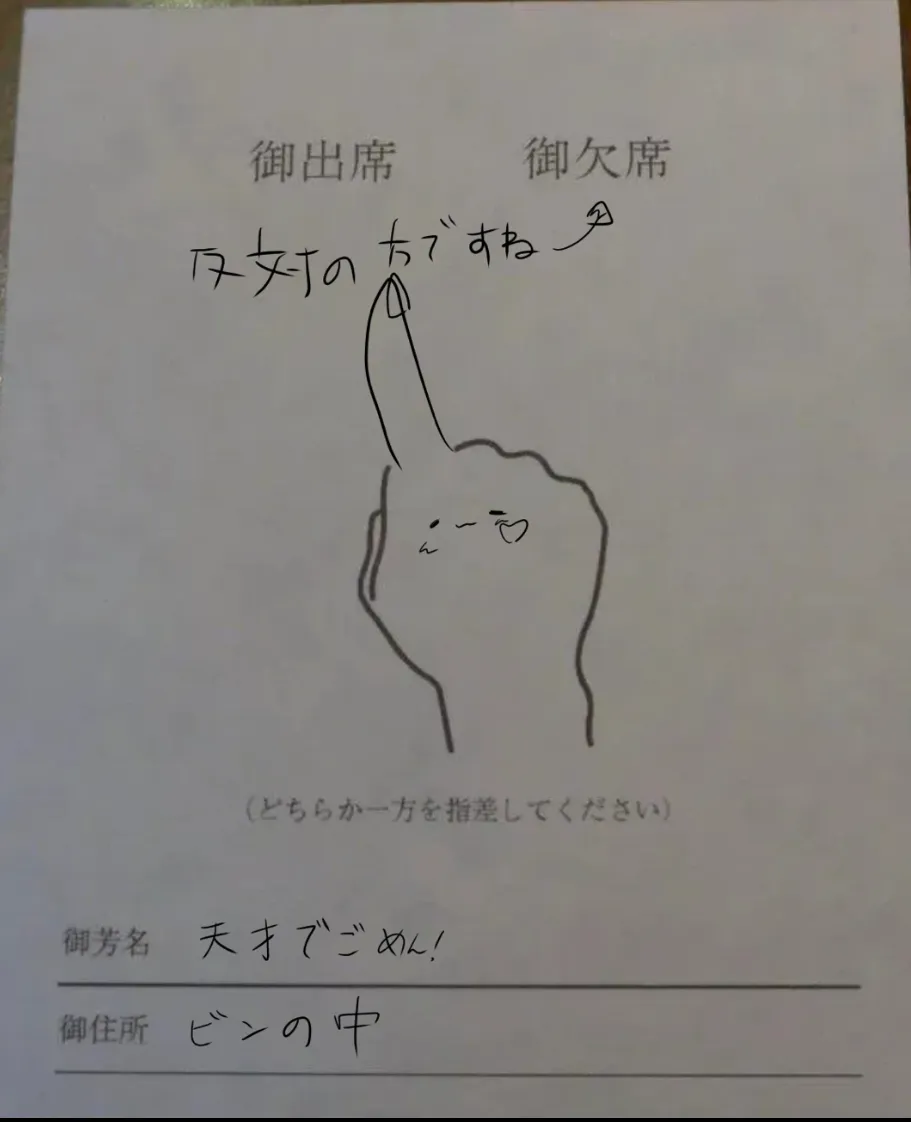 御出席 御欠席
反対の方ですね
(どちらか一方を指差してください)
御芳名 天才でごめん!
御住所 ビンの中